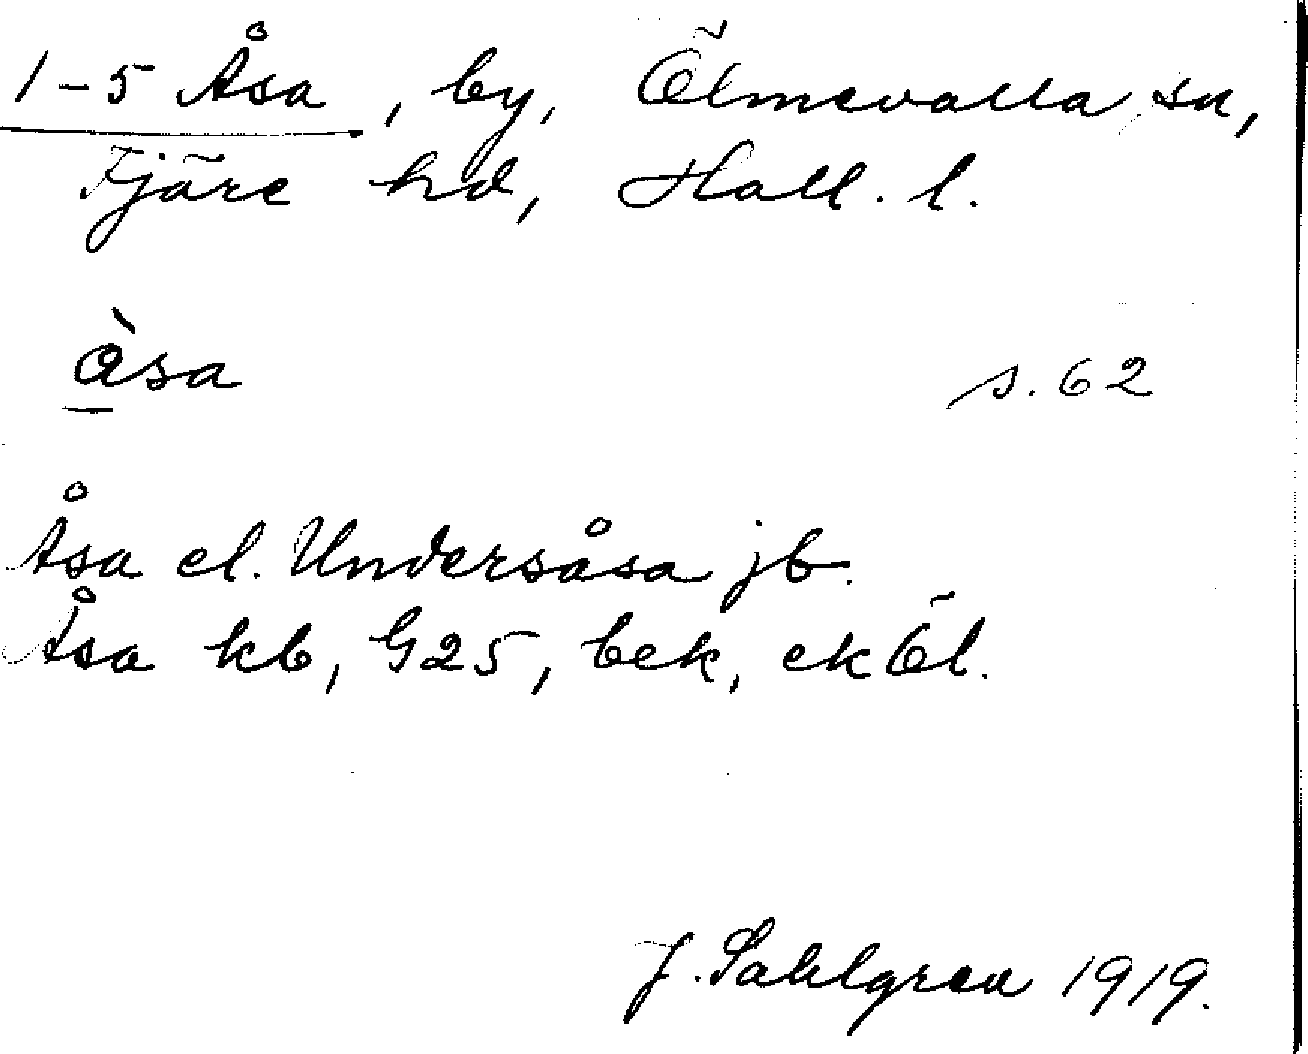 1-5 Åsa, by, Ölmevalla sn,
Fjäre hd, Hall. l.
àsa s. 62
Åsa el. Undersåsa jb.
Åsa kb, G25, bek, ek Öl.
J. Sahlgren 1919.